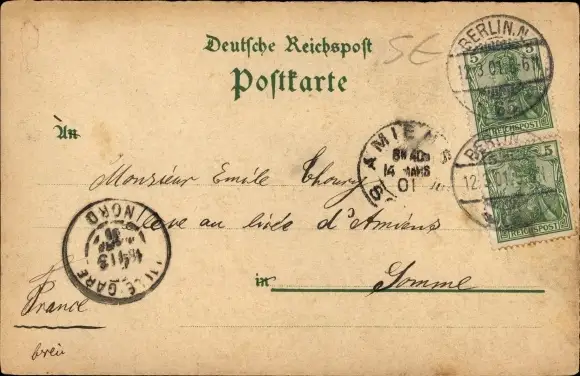 Deutsche Reichspost
Postkarte
SE
An
Monsieur Emile Thoury
élève au lycée d'Amiens
in Somme
France
BERLIN.N.
12.3.01.5-6N
65
5
REICHSPOST
BERLIN
12.3.01
5
REICHSPOST
AMIENS
14 MARS
01
LILLE GARE
NORD
13